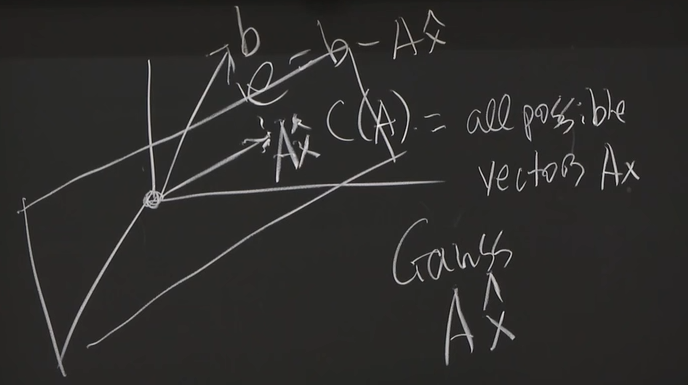 b
e = b - Ax̂
Ax̂
C(A) = all possible
vectors Ax
Gauss
Ax̂